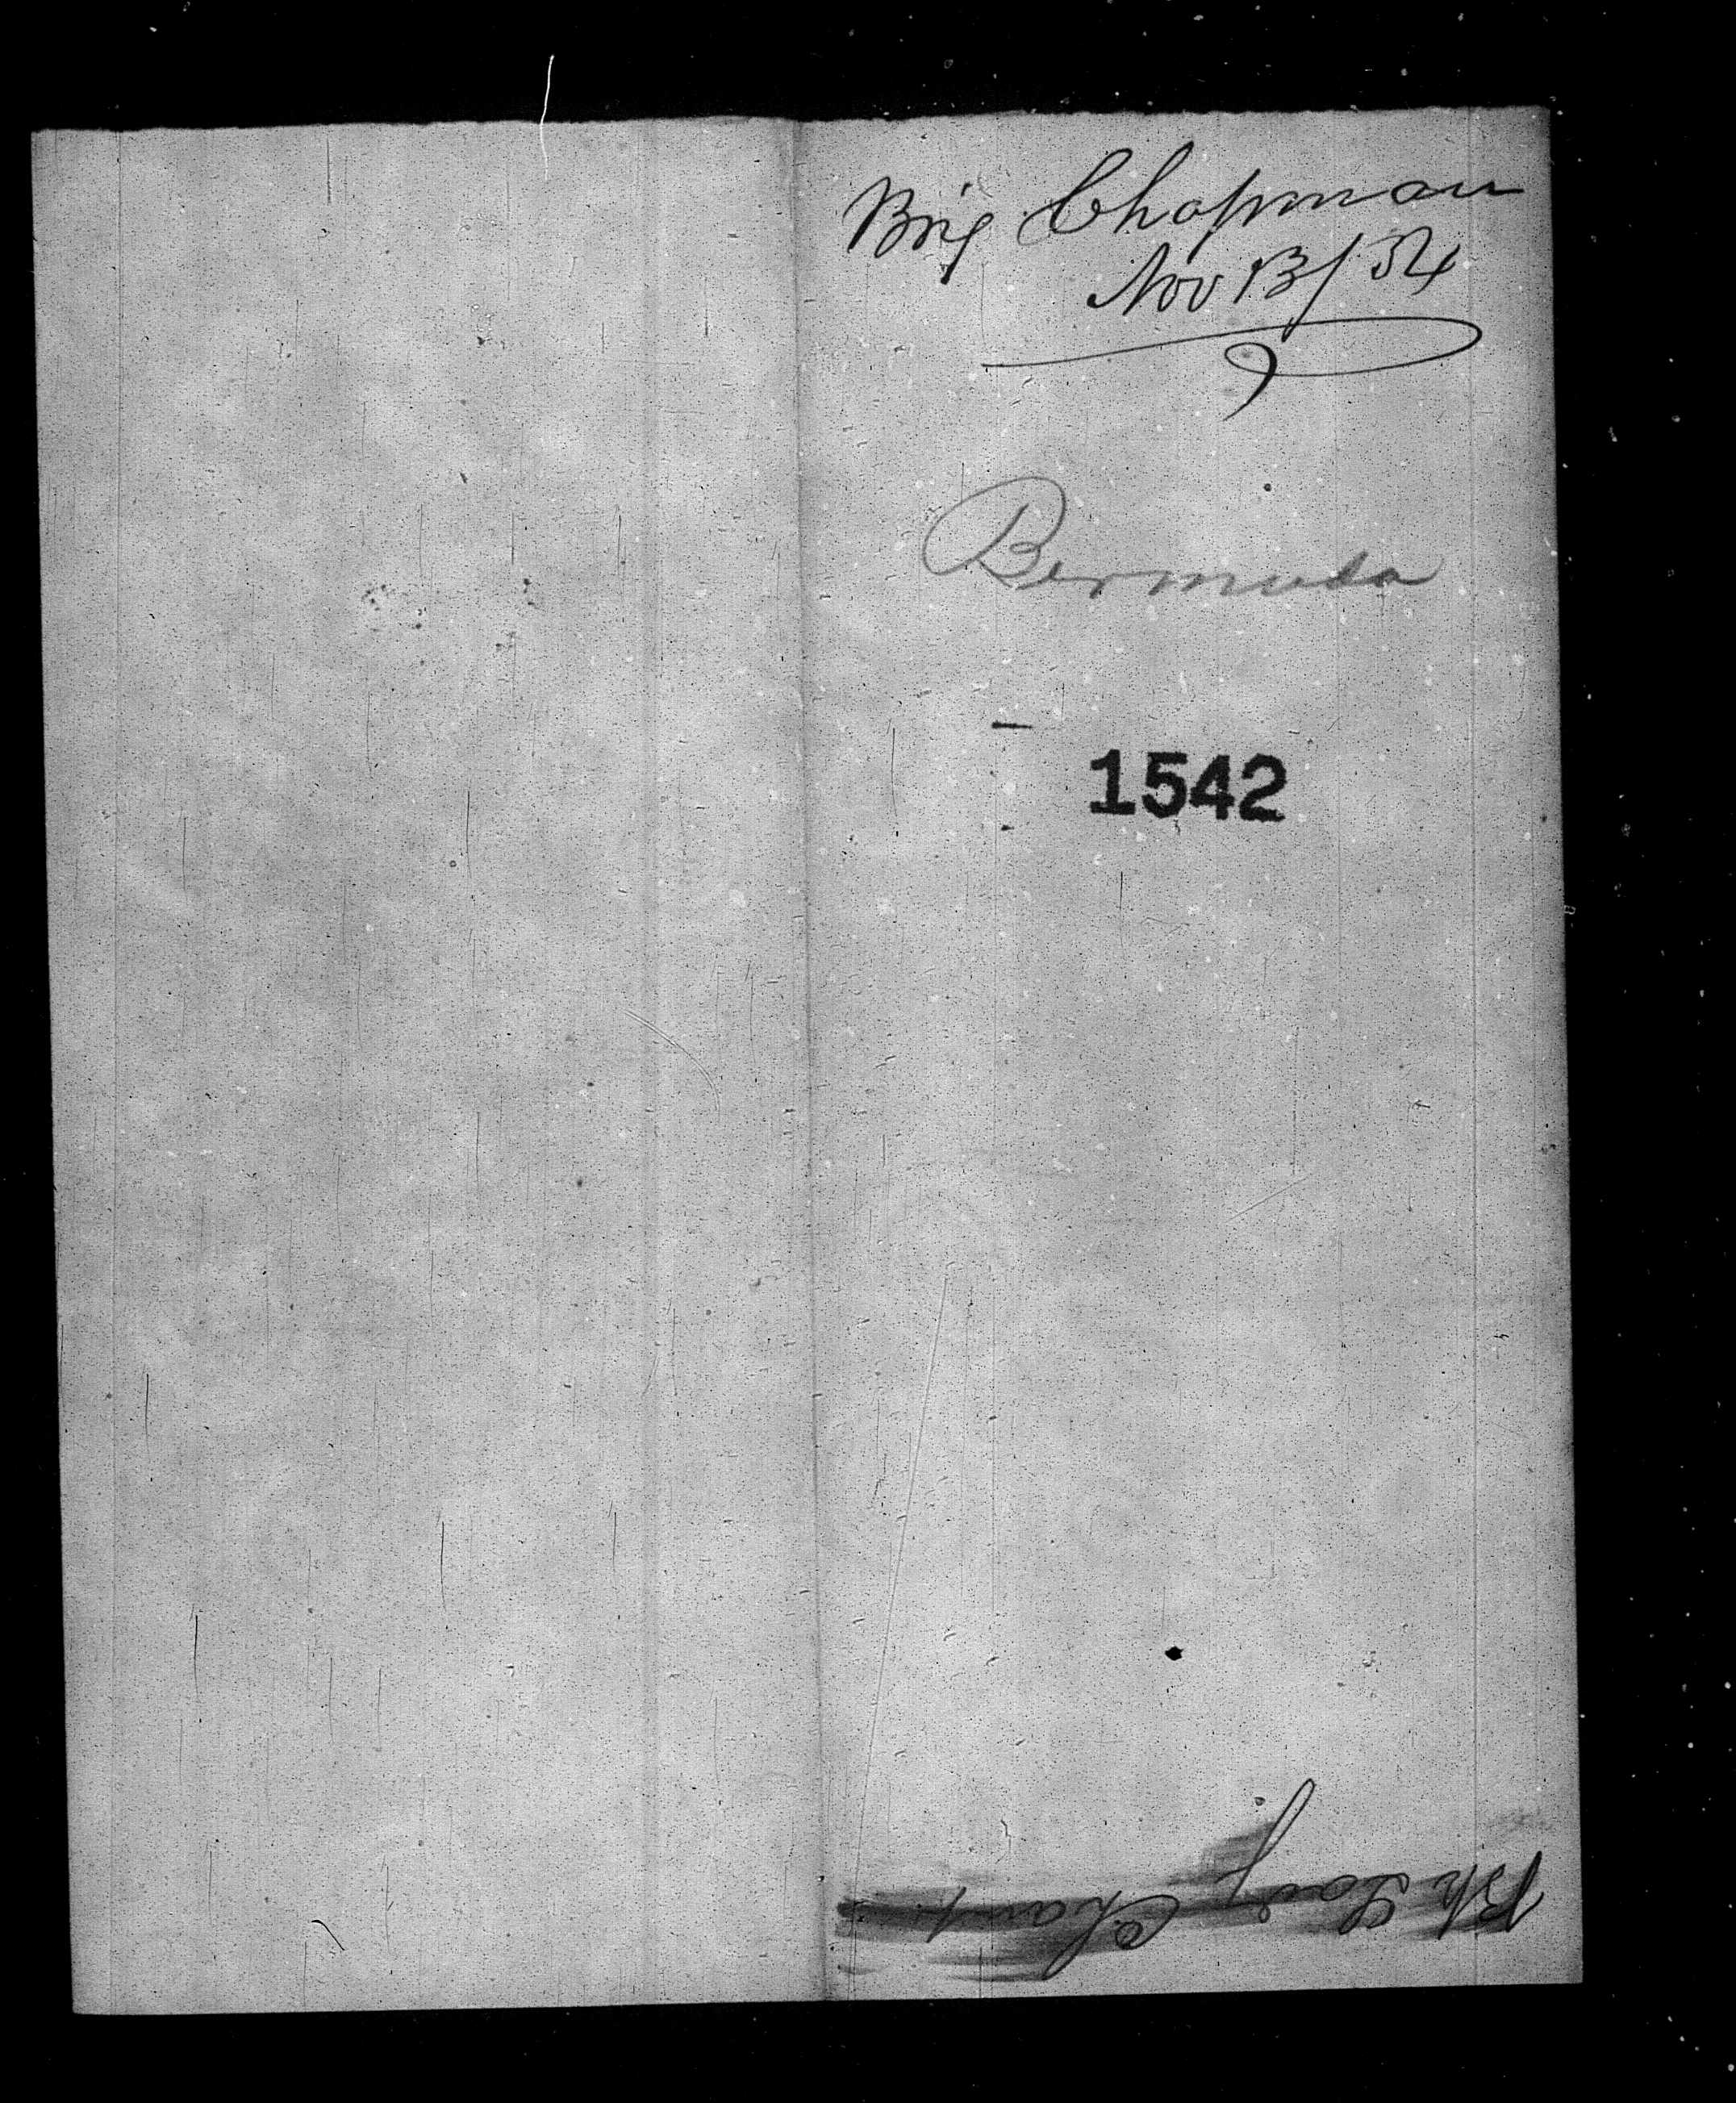 Brig Chapman
Nov 13/54
Bermuda
1542